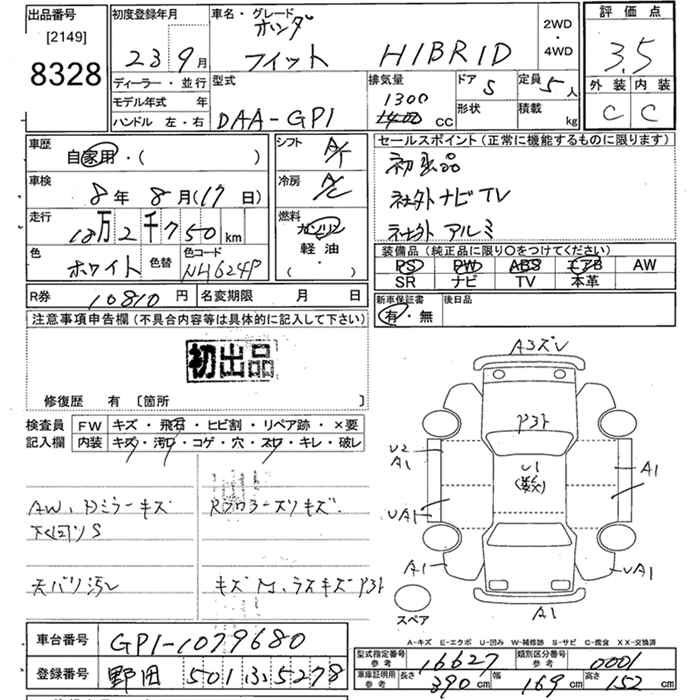 出品番号
[2149]
8328
初度登録年月
23 9月
車名・グレード
ホンダ
フィット HIBRID
2WD
・
4WD
評価点
3.5
外装 内装
C C
ディーラー・並行
モデル年式 年
ハンドル 左・右
型式
DAA-GP1
排気量
1300
cc
ドア 5
形状
定員 5人
積載 kg
車歴
自家用・( )
車検
8年 8月(17日)
走行
18万2千750km
色
ホワイト
色替
色コード
NH624P
シフト
A/T
冷房
A/C
燃料
ガソリン
軽油
( ・ )
セールスポイント(正常に機能するものに限ります)
初出品
社外ナビTV
社外アルミ
装備品(純正品に限り○をつけてください)
PS PW ABS エアB AW
SR ナビ TV 本革
R券 10810円 名変期限 月 日
新車保証書
有・無
後日品
注意事項申告欄(不具合内容等は具体的に記入して下さい)
初出品
修復歴 有 〔箇所 〕
検査員
記入欄
FW キズ・飛石・ヒビ割・リペア跡・×要
内装 キズ・汚レ・コゲ・穴・スレ・キレ・破レ
AW、ドミラーキズ
下回りS
天バリ汚レ
Rフロアーズリキズ.
A3ズレ
U2
A1
UA1
A1
U1
(数)
A1
UA1
A1
スペア
A-キズ E-エクボ U-凹み W-補修跡 S-サビ C-腐食 XX-交換済
車台番号 GP1-1079680
登録番号 野田 501 ふ 5278
型式指定番号
参考
16627
類別区分番号
参考
0001
車庫証明用
参考
長さ 390cm 幅 169cm 高さ 152cm